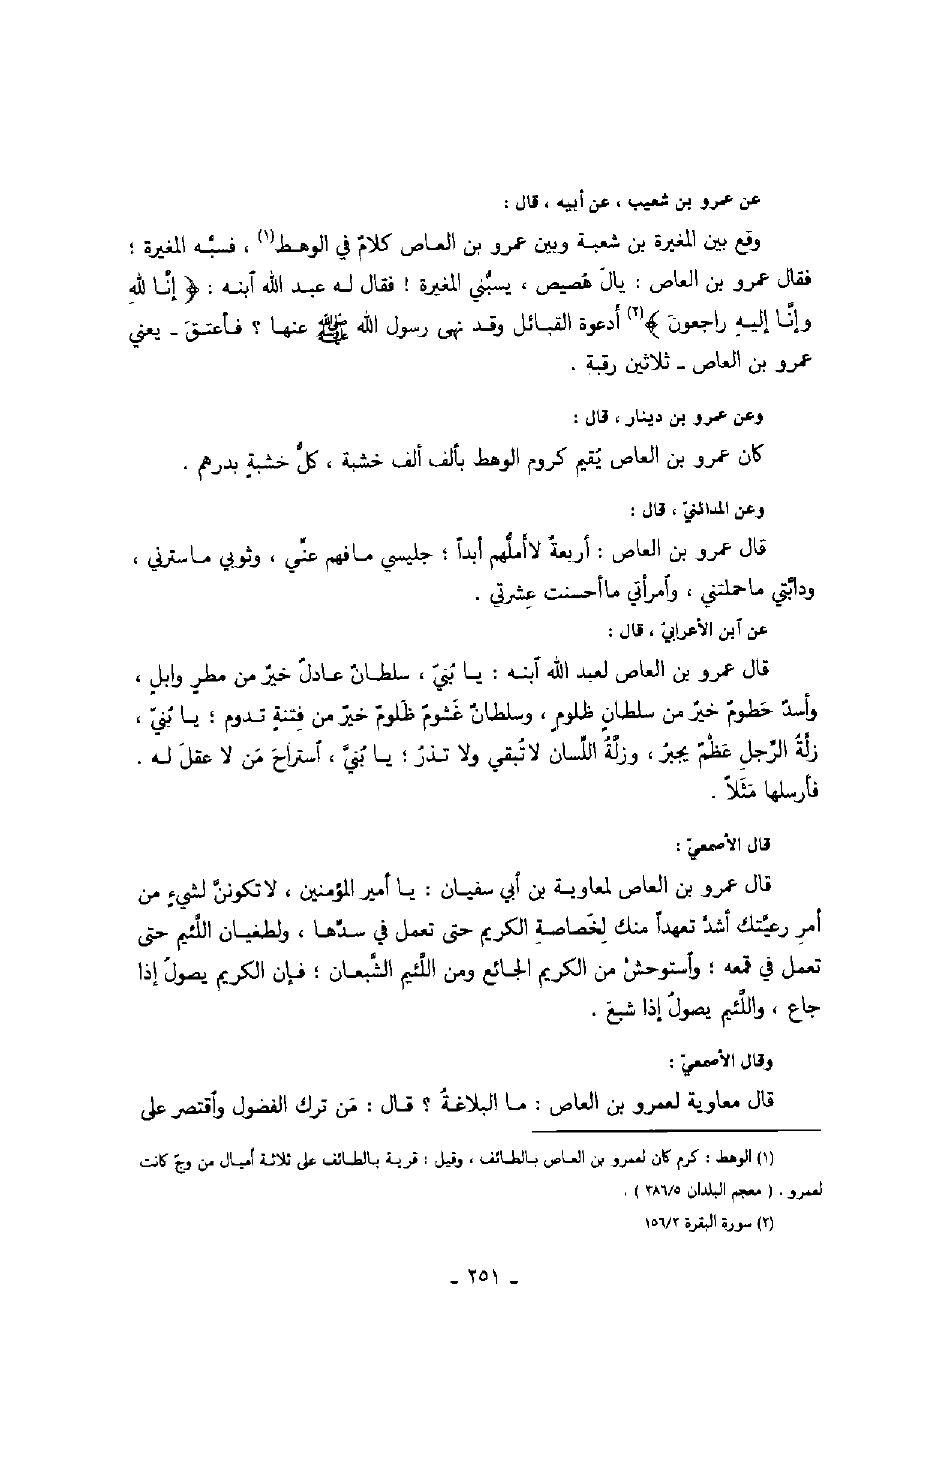 عن عمرو بن شعيب ، عن أبيه ، قال :
وقع بين المغيرة بن شعبة وبين عمرو بن العاص كلامٌ في الوهط(١) ، فسبَّه المغيرة ؛
فقال عمرو بن العاص : يالَ هُصيص ، يسبُّني المغيرة ! فقال له عبد الله آبنه : ﴿ إنَّا للهِ
وإنَّا إليهِ راجعونَ ﴾(٢) أدعوة القبائل وقد نهى رسول الله ﷺ عنها ؟ فأعتقَ ـ يعني
عمرو بن العاص ـ ثلاثين رقبة .
وعن عمرو بن دينار ، قال :
كان عمرو بن العاص يُقيم كروم الوهط بألف ألف خشبة ، كلُّ خشبةٍ بدرهم .
وعن المدائنيّ ، قال :
قال عمرو بن العاص : أربعةٌ لاأملُّهم أبداً ؛ جليسي مافهم عنِّي ، وثوبي ماسترني ،
ودابَّتي ماحملتني ، وآمرأتي ماأحسنت عِشرتي .
عن آبن الأعرابيّ ، قال :
قال عمرو بن العاص لعبد الله آبنه : يا بُنيّ ، سلطانٌ عادلٌ خيرٌ من مطرٍ وابلٍ ،
وأسدٌ حَطومٌ خيرٌ من سلطانٍ ظلومٍ ، وسلطانٌ غَشومٌ ظَلومٌ خيرٌ من فِتنةٍ تدوم ؛ يا بُنيّ ،
زلَّةُ الرِّجلِ عَظْمٌ يجبرُ ، وزلَّةُ اللِّسان لاتُبقي ولا تذرُ ؛ يا بُنيَّ ، آستراحَ مَن لا عقلَ له .
فأرسلها مَثَلاً .
قال الأصمعيّ :
قال عمرو بن العاص لمعاوية بن أبي سفيان : يا أمير المؤمنين ، لاتكوننَّ لشيءٍ من
أمرِ رعيَّتك أشدّ تعهداً منك لِخَصاصةِ الكريم حتى تعمل في سدِّها ، ولطغيان اللَّئيم حتى
تعمل في قمعه ؛ وآستوحشْ من الكريم الجائع ومن اللَّئيم الشَّبعان ؛ فإن الكريم يصولُ إذا
جاع ، واللَّئيم يصولُ إذا شبعَ .
وقال الأصمعيّ :
قال معاوية لعمرو بن العاص : ما البلاغةُ ؟ قال : مَن ترك الفضول وآقتصر على
(١) الوهط : كرم كان لعمرو بن العاص بالطائف ، وقيل : قرية بالطائف على ثلاثة أميال من وجّ كانت
لعمرو . ( معجم البلدان ٣٨٦/٥ ) .
(٢) سورة البقرة ١٥٦/٢
ـ ٢٥١ ـ